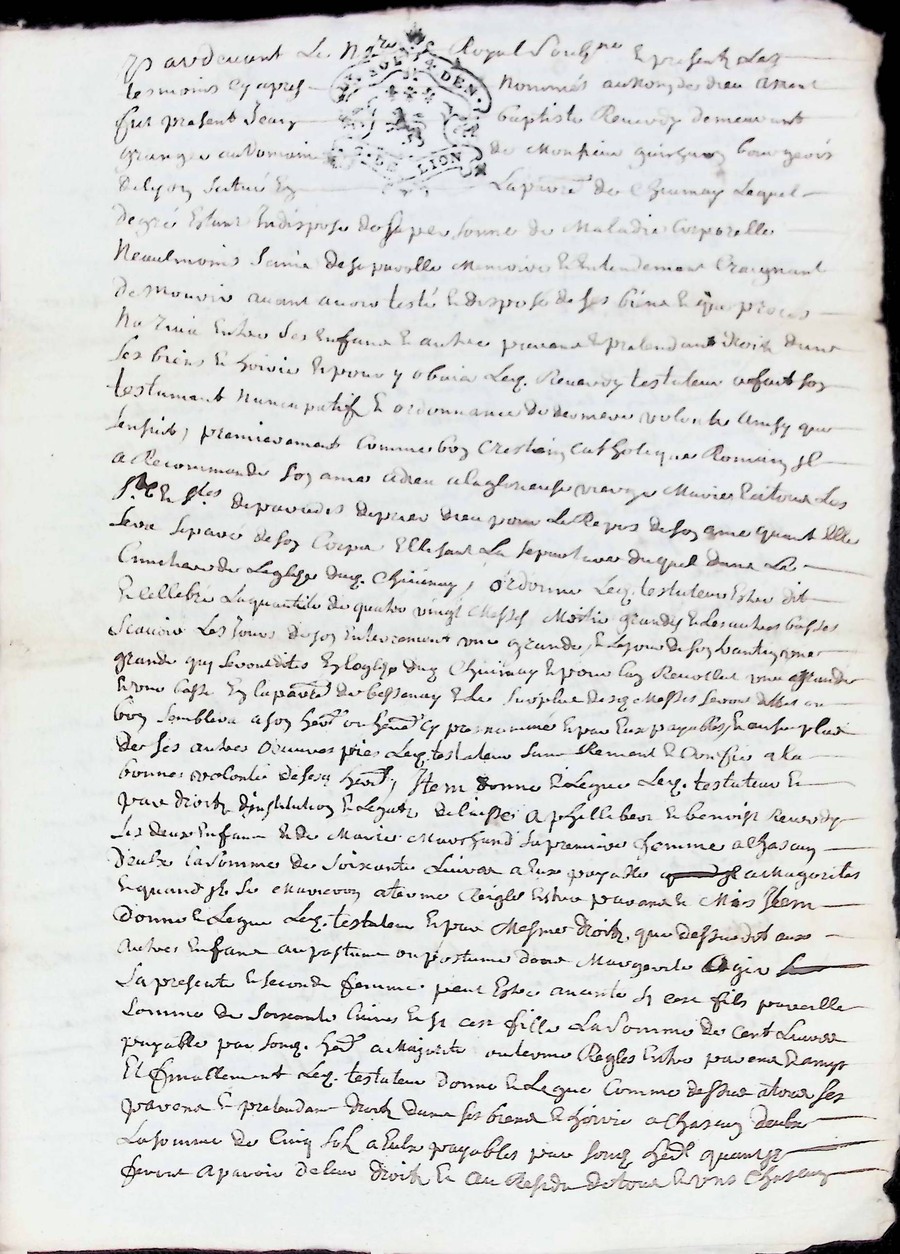 Pardevant Le Nre Royal Soubzne & presentz Les
tesmoins cy apres nommés au Nom de dieu amen
fut present Jean baptiste Reverdy demeurant
granger au Domaine de Monsieur bourgeois
de lyon situé En La parre de Chivinay Lequel
de gré Estant Indispose de sa personne de Maladie Corporelle
Neaulmoins Saine de sa parolle Memoire & Entendement Craignant
de Mourir avant avoir testé & dispose de ses biens & que proces
Entre ses Enfans & autres parens & pretendant droit dans
ses biens & hoirie & pour y obvier Led. Reverdy testateur a fait son
testament Nuncupatif & ordonnance de derniere volonte ainsy que
sensuit, premierement Comme bon Crestien Catholique Romain Il
a Recommande son ame a dieu a la glorieuse vierge Marie & a tous Les
Sts & Stes de paradis de prier dieu pour Le Repos de son ame quant Elle
sera separé de son Corps Ellisant La sepulture duquel dans Le
Cimetiere de Leglise dud. Chivinay, ordonne Led. testateur Estre dit
& cellebré La quantité de quatre vingt Messes Moitie grandes & Les autres basses
Scavoir Les Jours de son Enterrement une grande & Le jour de son une
grande qui seront dites En leglise dud. Chivinay & pour une grande
& une basse En la parre de bessenay & Le surplus desd. Messes seront dittes ou
bon semblera a son herr ou herre cy pres nommé & par Eux payables, & au surplus
de ses autres oeuvres pies Led. testateur sen Remet & Confie a la
bonne volonté de sesd. herrs, Item donne & Legue Led. testateur &
par droit dinstitution & Legat delaisse a phillibert & benoist Reverdy
ses deux Enfans & de Marie Marchand sa premiere femme a Chascun
deulx la somme de soixante Livres a Eux payable a Magorités
& quand Ilz se Mariront a terme Reiglé Entre parens & Amis Item
donne & Legue Led. testateur & par Mesmes droit que dessus dit aux
autres Enfans au postume ou postume dont Margerite Ogier
La presente & seconde femme peut Estre anceinte sy cest fils pareille
somme de soixante livres & sy cest fille La Somme de Cent Livres
payable par sond. herr a Majorité ou terme Regles Entre parens & amys
Et finallement Led. testateur donne & Legue Comme dessus a tous ses
parens & pretendant droit dans ses biens & hoirie a Chascun deulx
La somme de Cinq sols a Eulx payables par sond. herr quant Ilz
feront aparoir de leur droit & au Residu de tous & uns Chascun